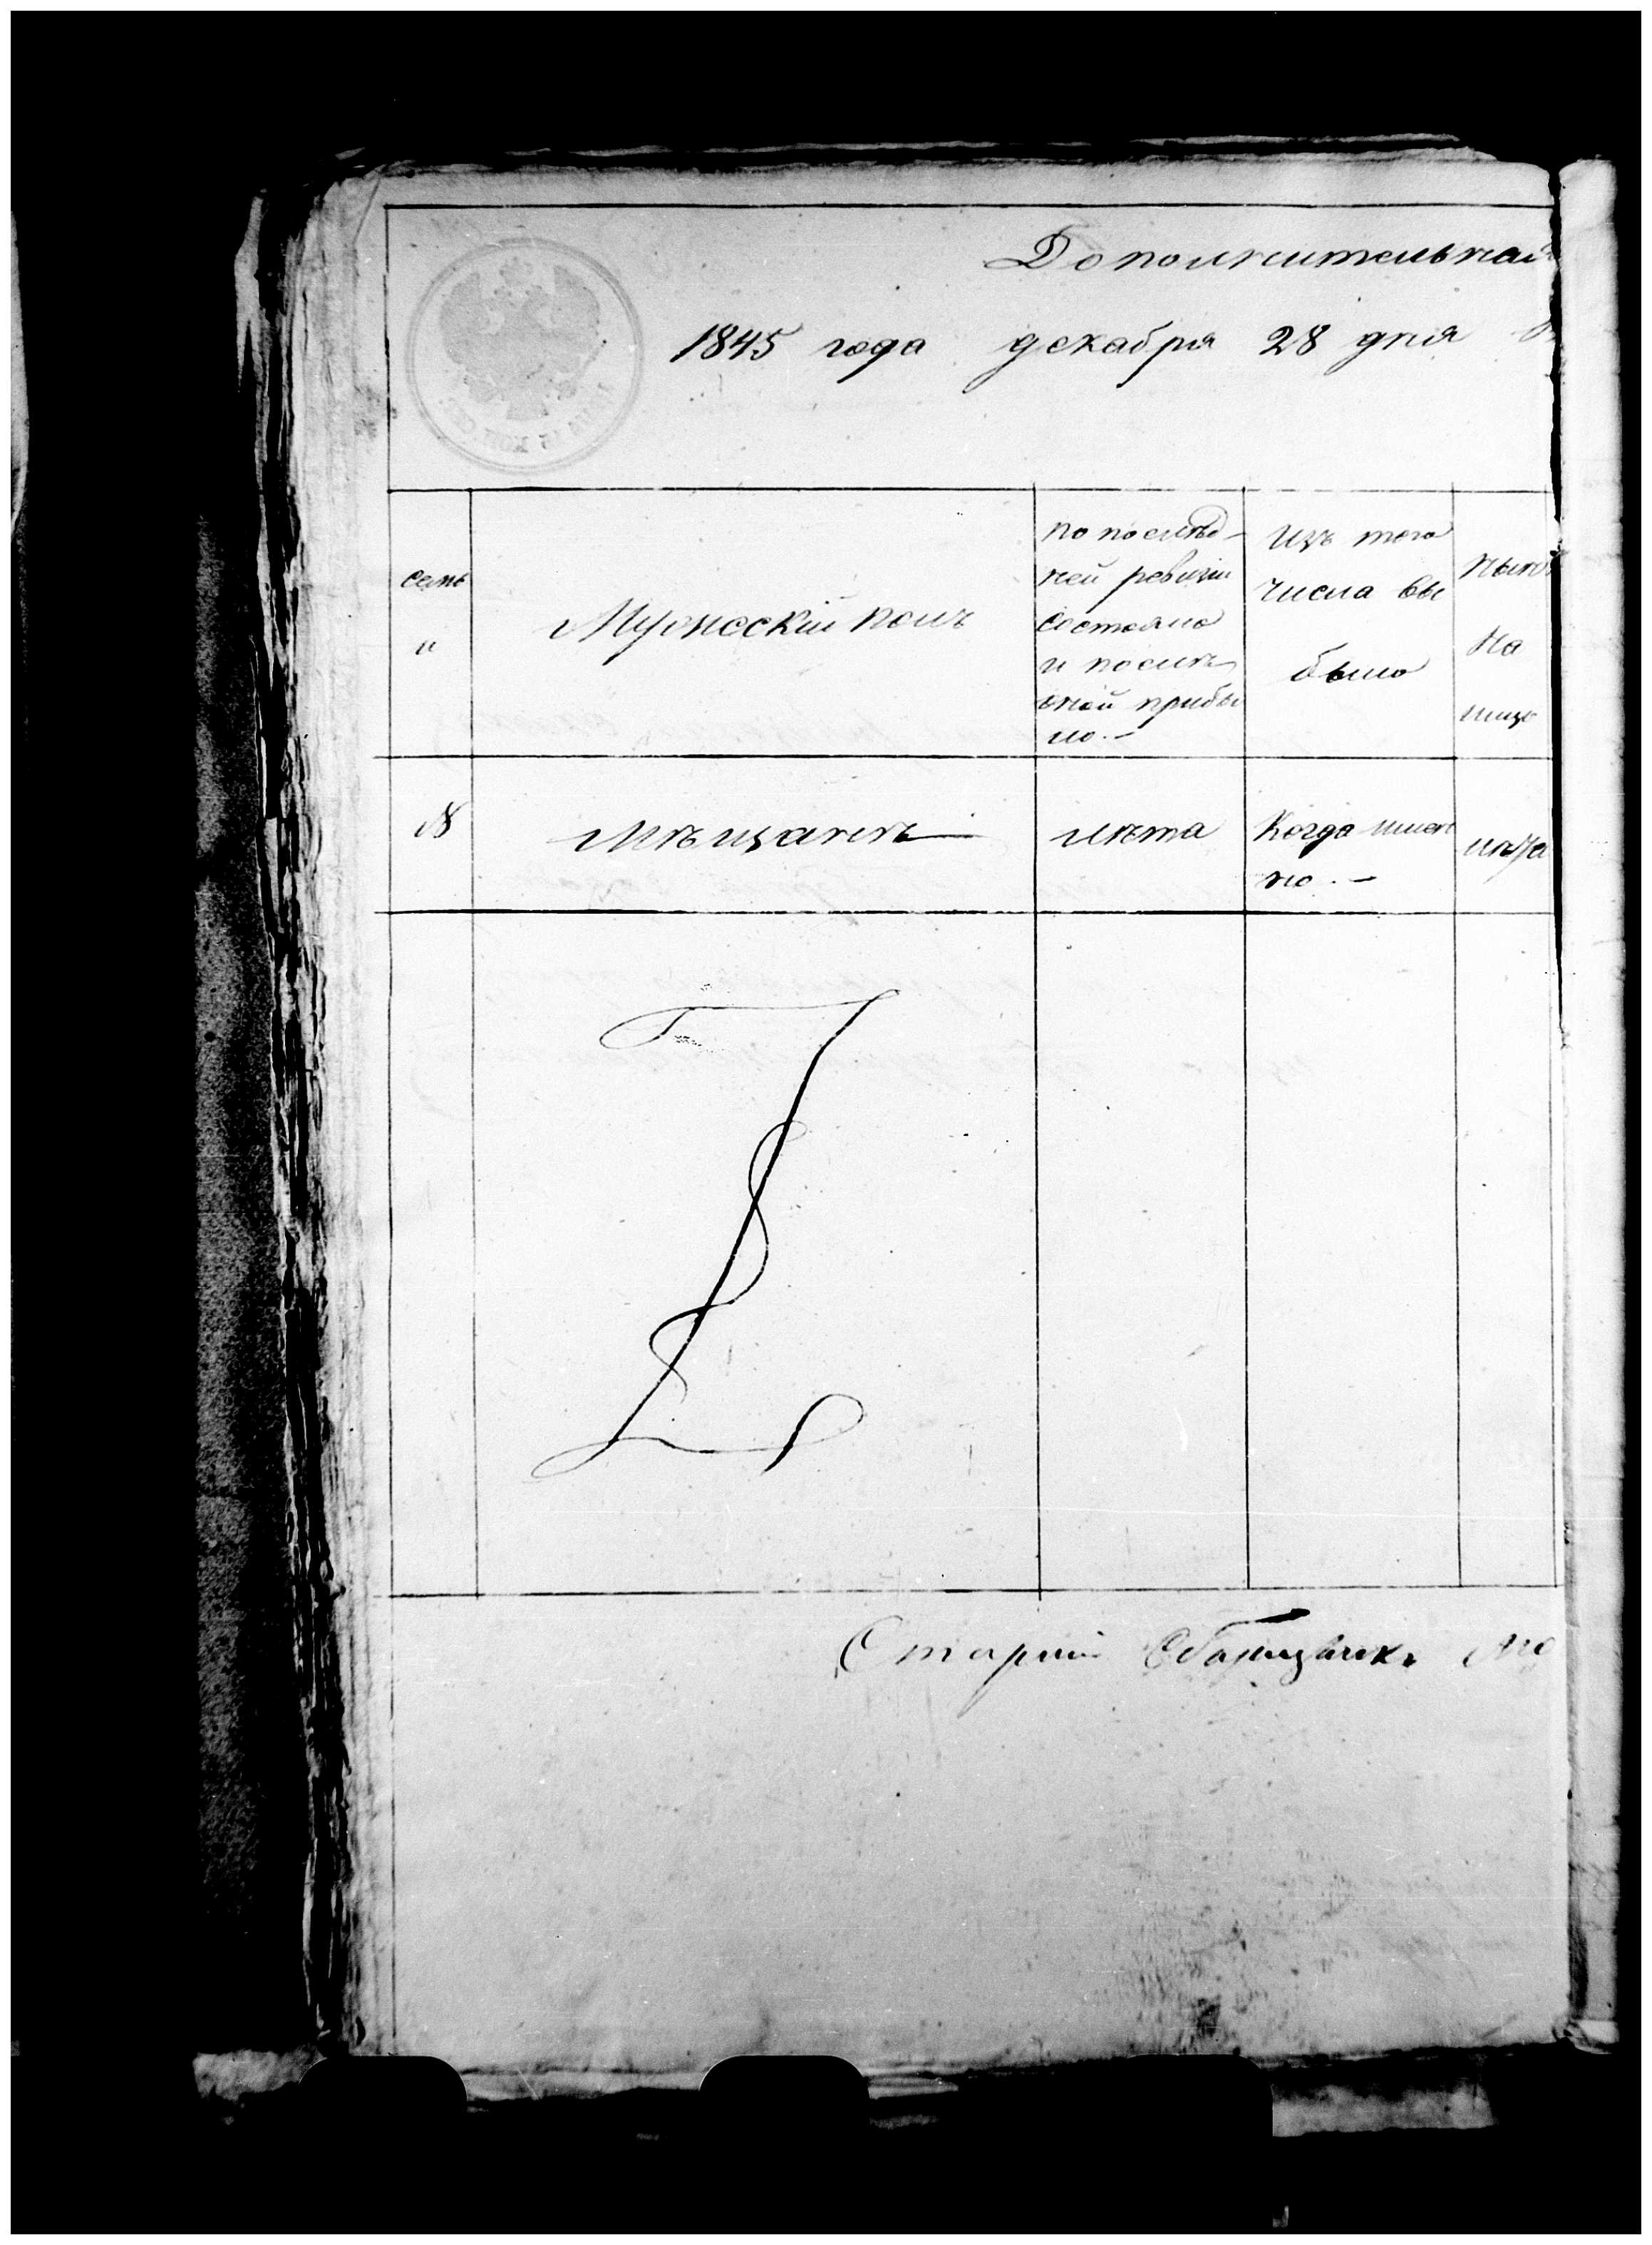 Дополнительная
1845 года декабря 28 дня
семь
и
Мужескiй полъ
по послѣд-
ней ревизiи
состояло
и послѣ
оной прибы
ло. —
Изъ того
числа вы
было
Нынѣ
На
лицо
№
Мѣщанѣ
лѣта
Когда имен
но. —
лѣта
Старшiй